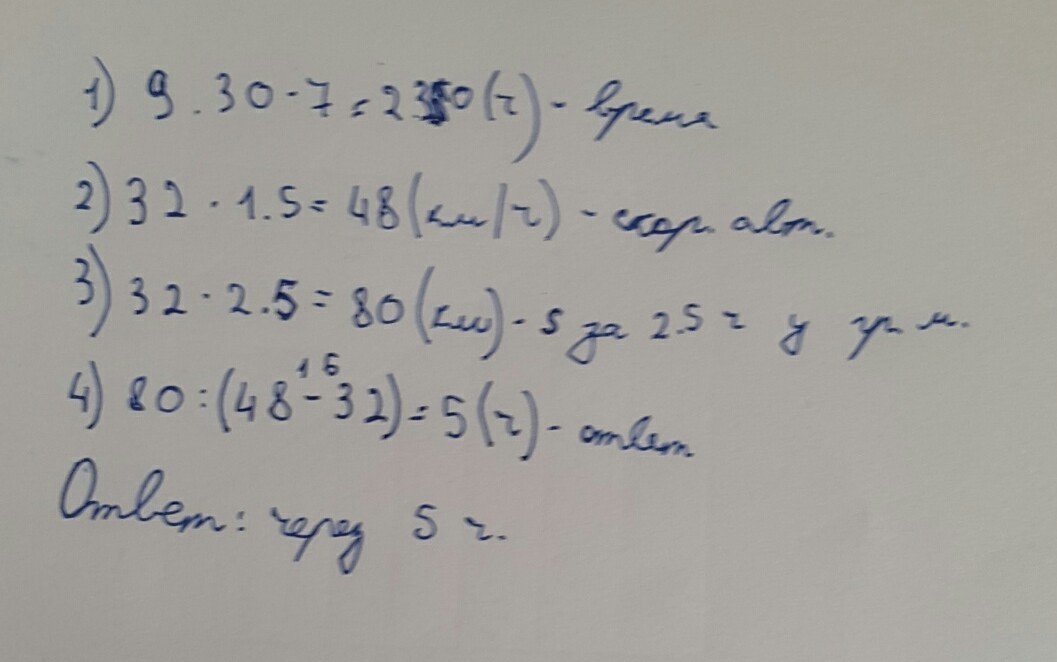 1) 9.30-7=2.30(ч)- время
2) 32·1.5=48(км/ч)- скор. авт.
3) 32·2.5=80(км)- s за 2.5 ч у гр. м.
16
4) 80:(48-32)=5(ч)- ответ
Ответ: через 5 ч.